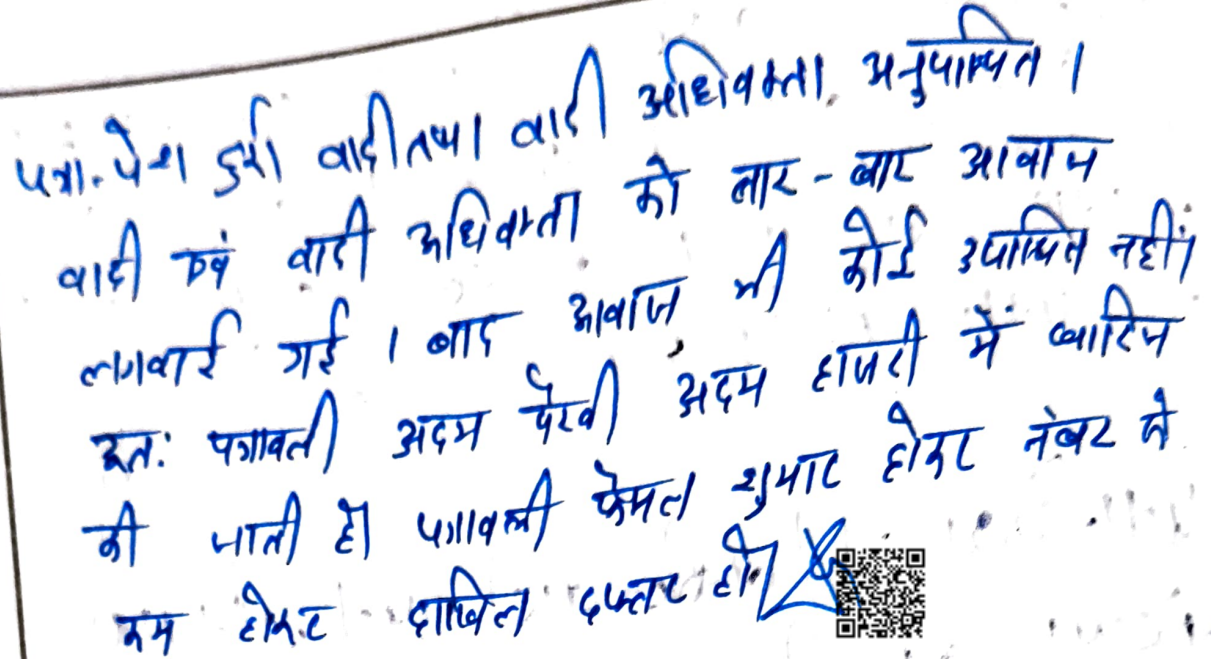 पत्रा. पेश हुई। वादी तथा वादी अधिवक्ता अनुपस्थित।
वादी एवं वादी अधिवक्ता को बार-बार आवाज
लगवाई गई। बाद आवाज भी कोई उपस्थित नहीं।
अतः पत्रावली अदम पैरवी अदम हाजरी में खारिज
की जाती है। पत्रावली फैसल शुमार होकर नंबर से
कम होकर दाखिल दफ्तर हो।